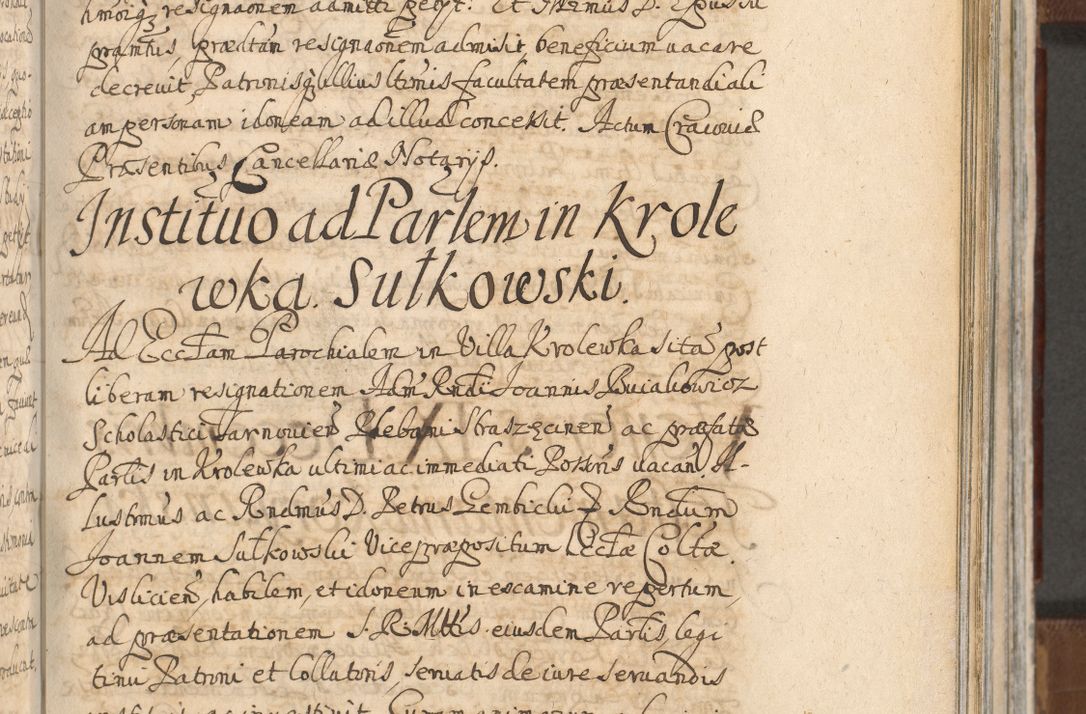 resignaonem admitti petyt. Et Illrmus D. Epus su
pramtus, prædtam resignaonem admisit, beneficium vacare
decrevit, Patronisq ulliusltimis facultatem præsentandi ali
am personam idoneam ad illud concessit. Actum Cracoviæ
Præsentibus Cancellariæ Notarys.
Instituo ad Parlem in Krole
wka. Sułkowski.
Ad Ecctam Parochialem in Villa Krolewka sitã post
liberam resignationem Adm Rndi Joannis Buiakowicz
Scholastici Tarnovien Plebani Straszęcinen ac præfatæ
Partis in Krolewka ultimi ac immediati Possoris vacan Il-
lustrmus ac Rndmus D. Petrus Gembicki Rndum
Joannem Sułkowski Vicepræpositum Ecctæ Coltæ
Vislicien, habilem, et idoneum in escamine repertum,
ad præsentationem S. R. Mttis eiusdem Partis legi
timi Patroni et Collatoris, servatis de iure servandis